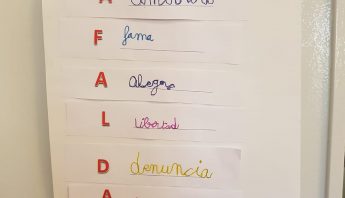 A
F fama
A alegre
L Libertad
D denuncia
A